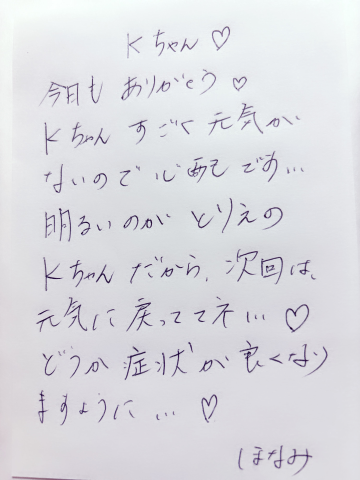 Kちゃん♡
今日も ありがとう♡
Kちゃん すごく元気が
ないので 心配です...
明るいのが とりえの
Kちゃんだから、次回は、
元気に戻っててネ...♡
どうか 症状が良くなり
ますように...♡
ほなみ